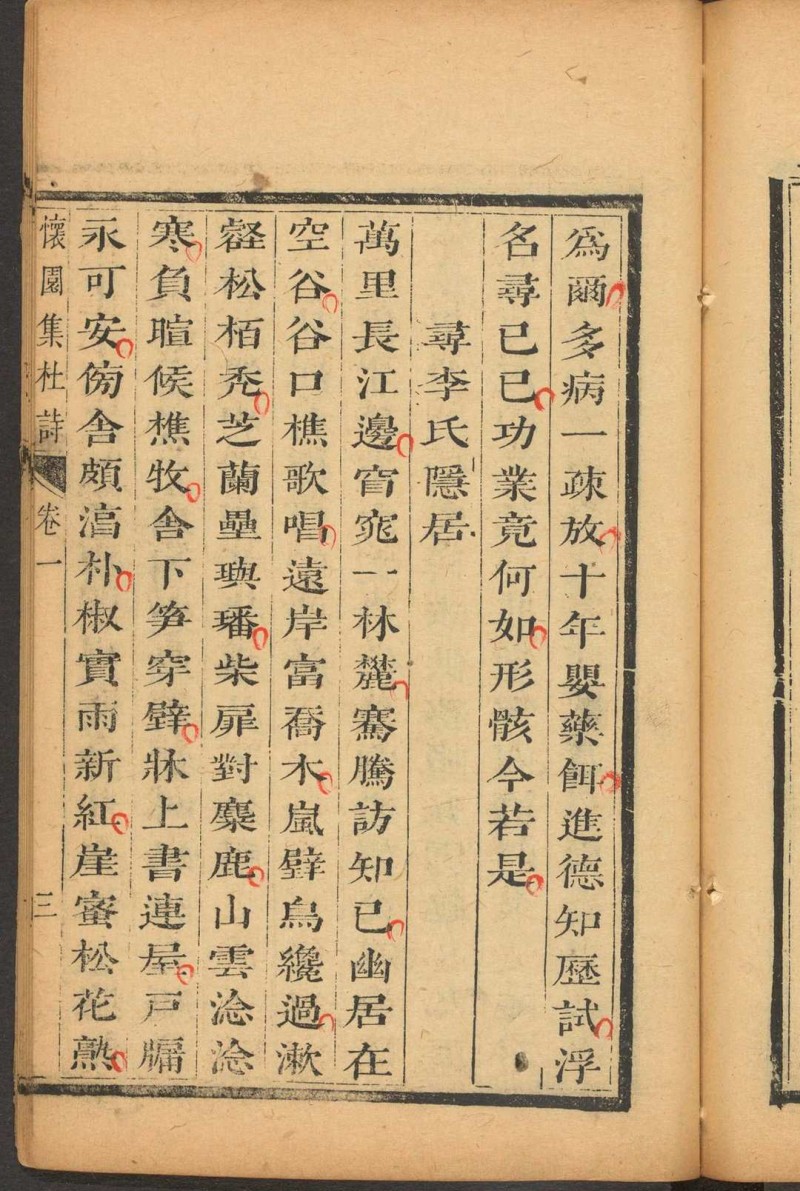 爲爾多病一疎放十年嬰藥餌進德知歷試浮
名尋已已功業竟何如形骸今若是
尋李氏隱居
萬里長江邊窅窕一林麓騫騰訪知已幽居在
空谷谷口樵歌唱遠岸富喬木嵐壁鳥纔過漱
壑松栢禿芝蘭疊璵璠柴扉對麋鹿山雲淰淰
寒負暄候樵牧舍下笋穿壁牀上書連屋戸牖
永可安傍舍頗淳朴椒實雨新紅崖蜜松花熟
懷園集杜詩 卷一 三